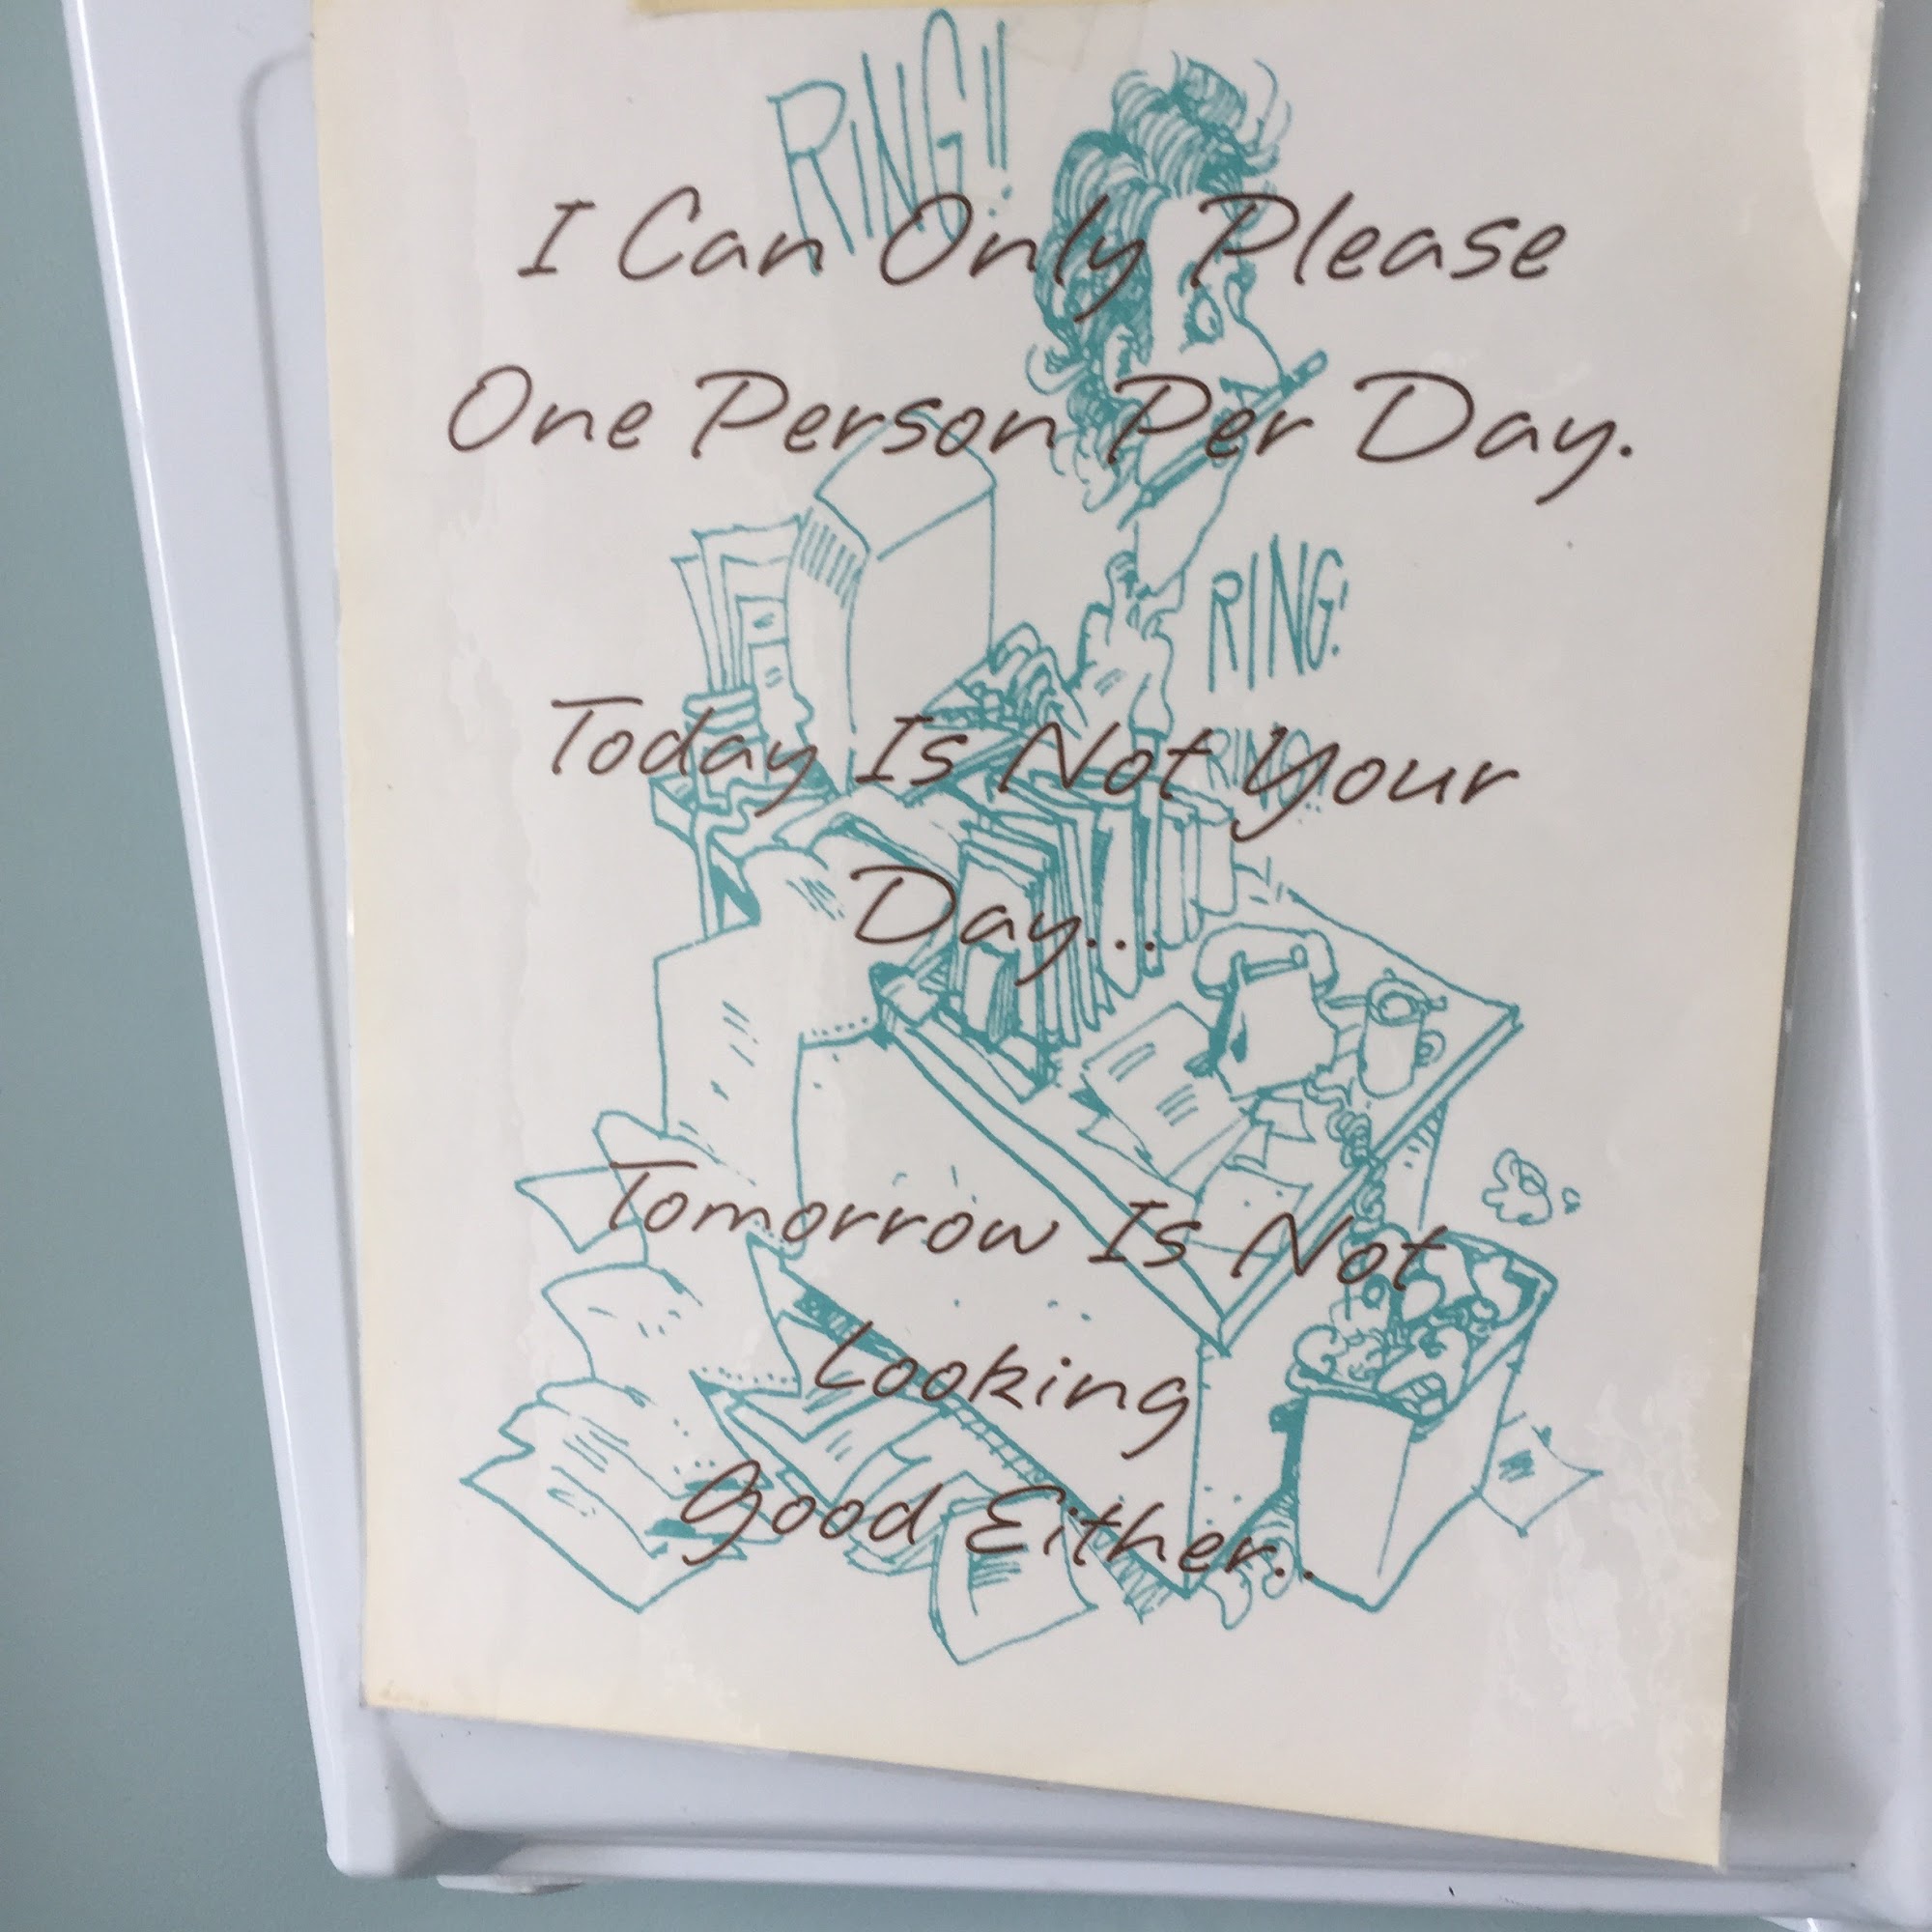 RING!!
I Can Only Please
One Person Per Day.
RING!
Today Is Not Your
RING!
Day...
Tomorrow Is Not
Looking
Good Either..